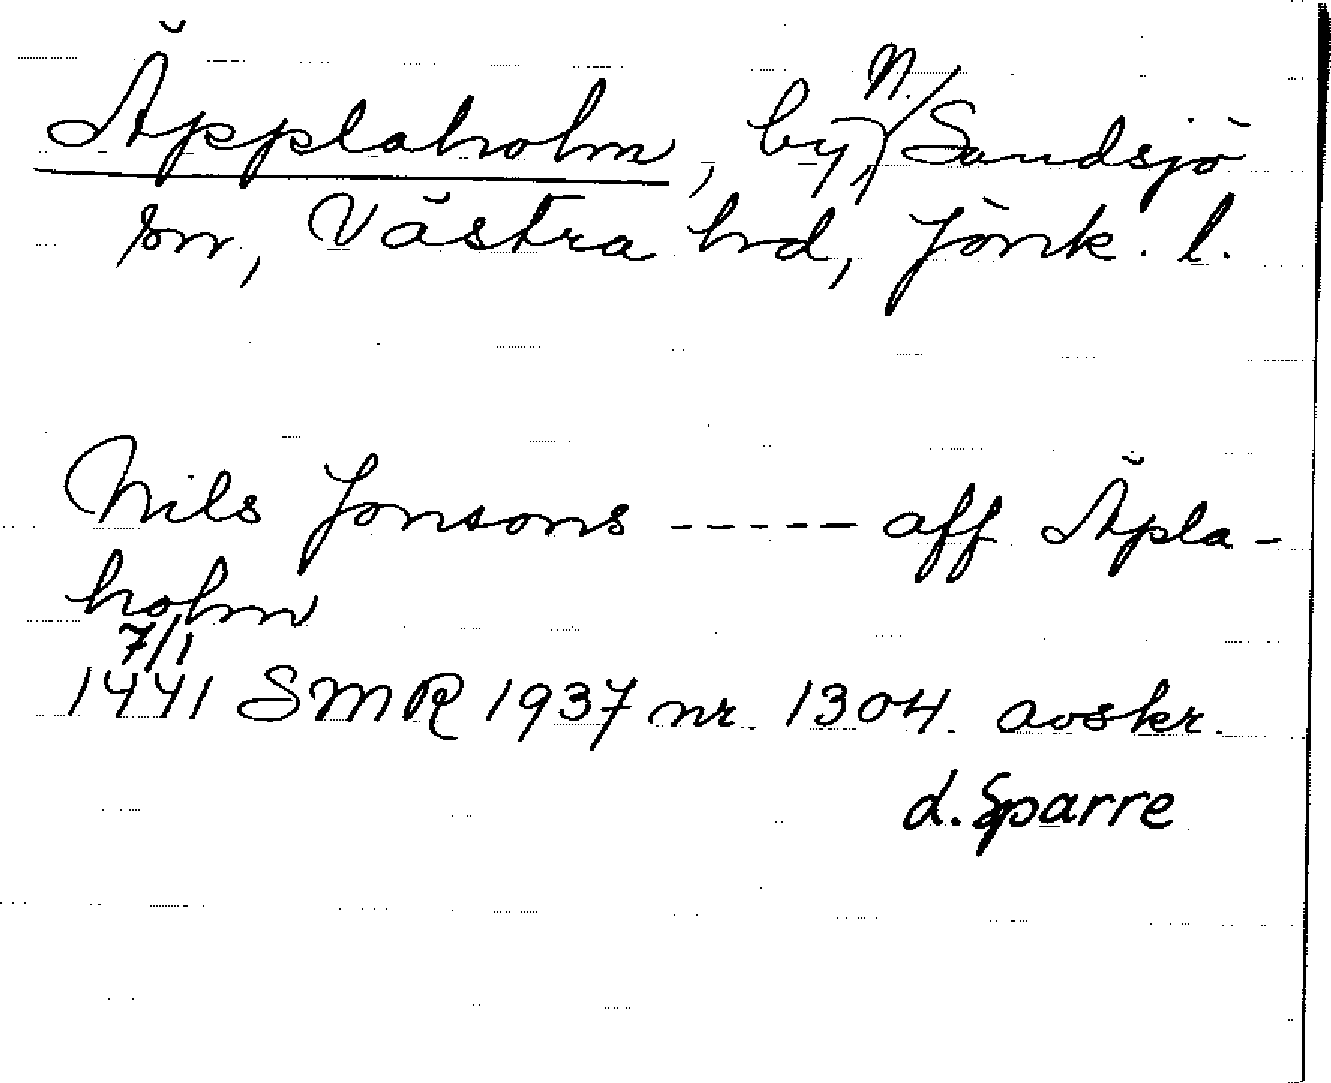 Äpplaholm, by, N. Sandsjö
sn, Västra hd, Jönk. l.
Nils Jonsons ----- aff Äpla-
holm
7/1
1441 SMR 1937 nr 1304. avskr.
d. Sparre